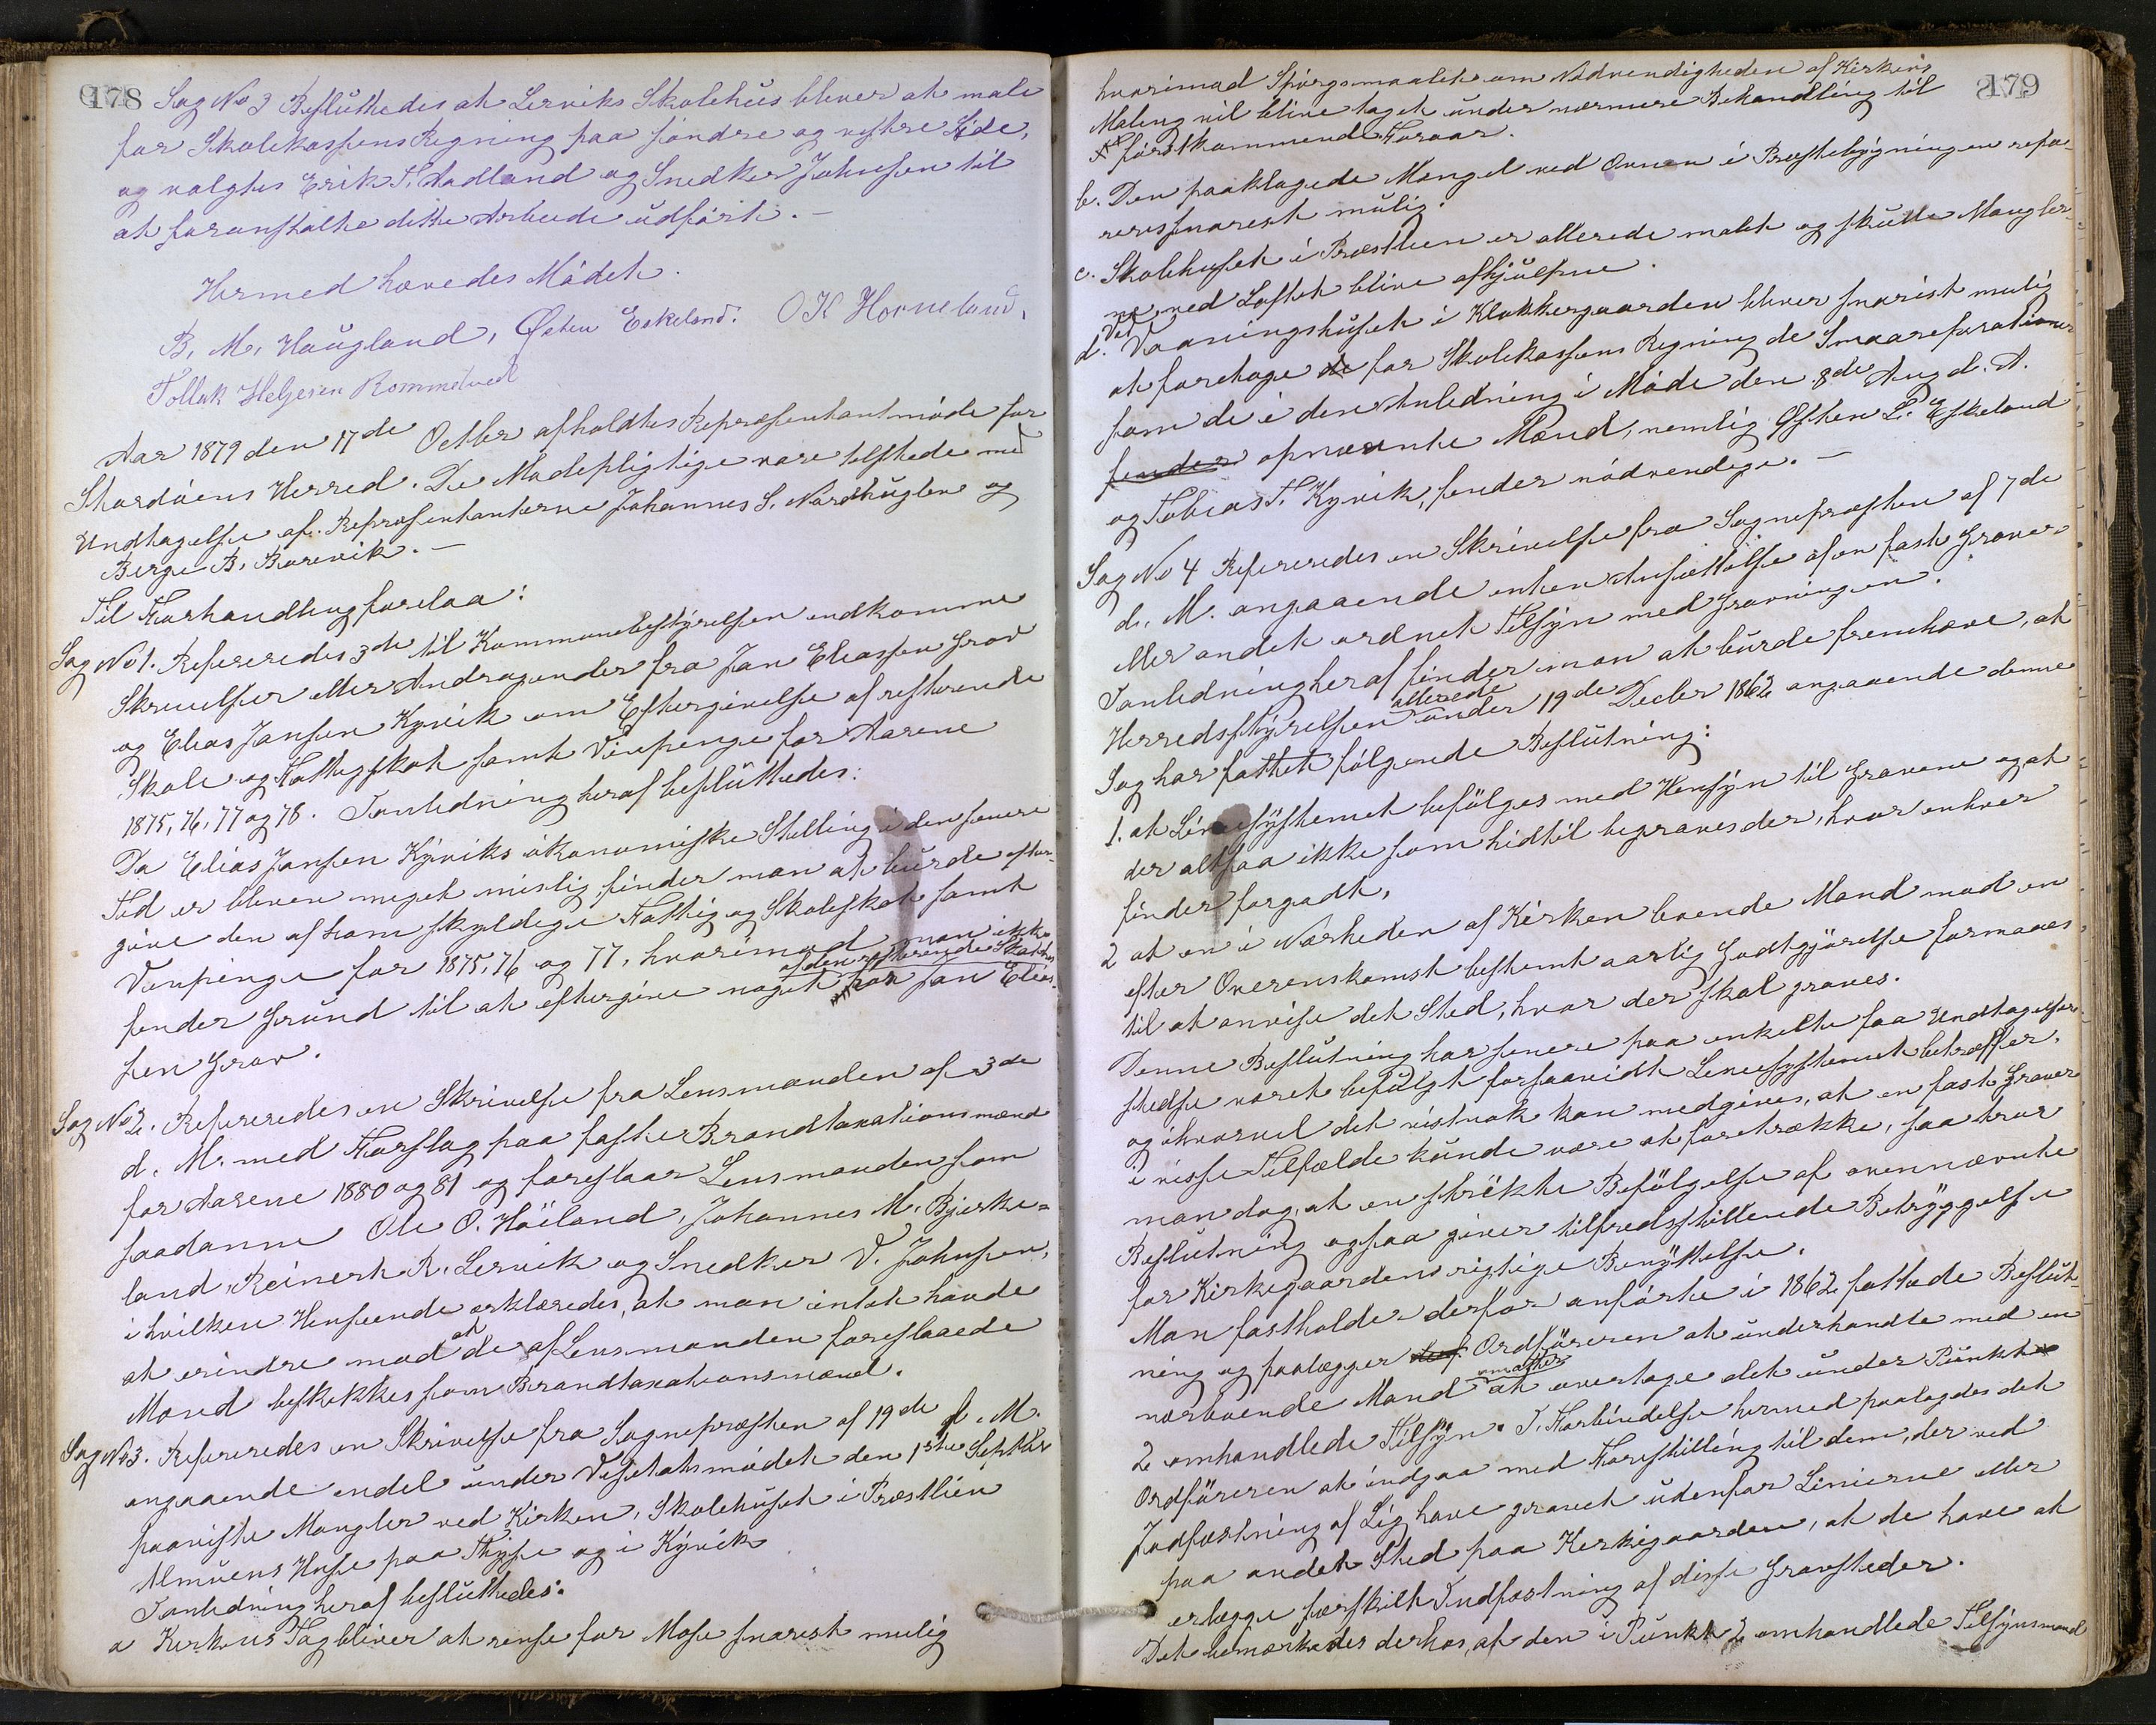 178
Sag No 3 Besluttedes at Lerviks Skolehus bliver at male
for Skolekassens Regning paa søndre og vestre Side,
og valgtes Erik T. Aadland og Snedker Johnsen til
at foranstalte dette Arbeide udført. —
Hermed hævedes Mødet.
B. M. Haugland, Østen Eskeland. O K Horneland,
Tollak Helgesen Rommetved
Aar 1879 den 17de Octbr afholdtes Repræsentantmøde for
Stordøens Herred. De Mødepligtige vare tilstede med
Undtagelse af Repræsentanterne Johannes S. Nordhuglen og
Berge B. Barevik. —
Til Forhandling forelaa:
Sag No 1. Refereredes 3de til Kommunebestyrelsen indkomne
Skrivelser eller Andragender fra Jan Eliassen Grov
og Elias Jansen Kyvik om Eftergivelse af resterende
Skole og Fattigskat samt Veipenge for Aarene
1875, 76, 77 og 78. I anledning heraf besluttedes:
Da Elias Jansen Kyviks økonomiske Stilling i den senere
Tid er bleven meget mislig finder man at burde efter-
give den af ham skyldige Fattig og Skoleskat samt
Veipenge for 1875, 76 og 77, hvorimod man ikke
af den resterende Skat hos
finder Grund til at eftergive noget for Jan Elias-
sen Grov.
Sag No 2. Refereredes en Skrivelse fra Lensmanden af 3de
d. M. med Forslag paa faste Brandtaxationsmænd
for Aarene 1880 og 81 og foreslaar Lensmanden som
saadanne Ole O. Høiland, Johannes M. Bjerke-
land, Reinert R. Lervik og Snedker V. Johnsen,
i hvilken Henseende erklæredes, at man intet havde
at erindre mod at de af Lensmanden foreslaaede
Mænd beskikkes som Brandtaxationsmænd.
Sag No 3. Refereredes en Skrivelse fra Sognepræsten af 19de d. M.
angaaende endel under Visitatsmødet den 1ste Septbr
paaviste Mangler ved Kirken, Skolehuset i Præstlien
Almuens Huse paa Thyse og i Kyvik
I anledning heraf besluttedes:
a Kirkens Tag bliver at rense for Mose snarest mulig
179
hvorimod Spørgsmaalet om Nødvendigheden af Kirkens
Maling vil blive taget under nærmere Behandling til
førstkommende Foraar.
b. Den paaklagede Mangel ved Ovnen i Præstebygningen repa-
reres snarest mulig.
c. Skolehuset i Præstlien er allerede malet og skulle Mangler-
ne ved Loftet blive afhjulpne.
d. Ved Vaaningshuset i Klokkergaarden bliver snarest mulig
at foretage de for Skolekassens Regning de Smaareparationer
som de i den Anledning i Møde den 8de Aug d. A.
finder opnævnte Mænd, nemlig Østen L. Eskeland
og Tobias T. Kyvik, finder nødvendige. —
Sag No 4 Refereredes en Skrivelse fra Sognepræsten af 7de
d. M. angaaende enten Ansættelse af en fast Graver
eller andet ordnet Tilsyn med Gravningen.
I anledning heraf finder man at burde fremhæve, at
Herredsstyrelsen allerede under 19de Decbr 1862 angaaende denne
Sag har fattet følgende Beslutning:
1. at Liniesystemet befølges med Hensyn til Gravene og at
der altsaa ikke som hidtil begraves der, hvor enhver
finder forgodt,
2 at en i Nærheden af Kirken boende Mand mod en
efter Overenskomst bestemt aarlig Godtgjørelse formaaes
til at anvise det Sted, hvor der skal graves.
Denne Beslutning har senere paa enkelte faa Undtagelser
stedse været befulgt forsaavidt Liniesystemet betræffer,
og ihvorvel det vistnok kan medgives, at en fast Graver
i visse Tilfælde kunde være at foretrække, saa tror
man dog, at en strikte Befølgelse af ovennævnte
Beslutning ogsaa giver tilfredsstillende Betryggelse
for Kirkegaardens rigtige Benyttelse.
Man fastholder derfor anførte i 1862 fattede Beslut-
ning og paalægger Ordføreren at underhandle med en
nærboende Mand om atter at overtage det under Punkt
2 omhandlede Tilsyn. I Forbindelse hermed paalagdes det
Ordføreren at indgaa med Forestilling til dem, der ved
Jordfæstning af Lig have gravet udenfor Linierne eller
paa andet Sted paa Kirkegaarden, at de have at
erlægge særskilt Indfæstning af disse Gravsteder.
Det bemærkedes derhos, at den i Punkt 2 omhandlede Tilsynsmand